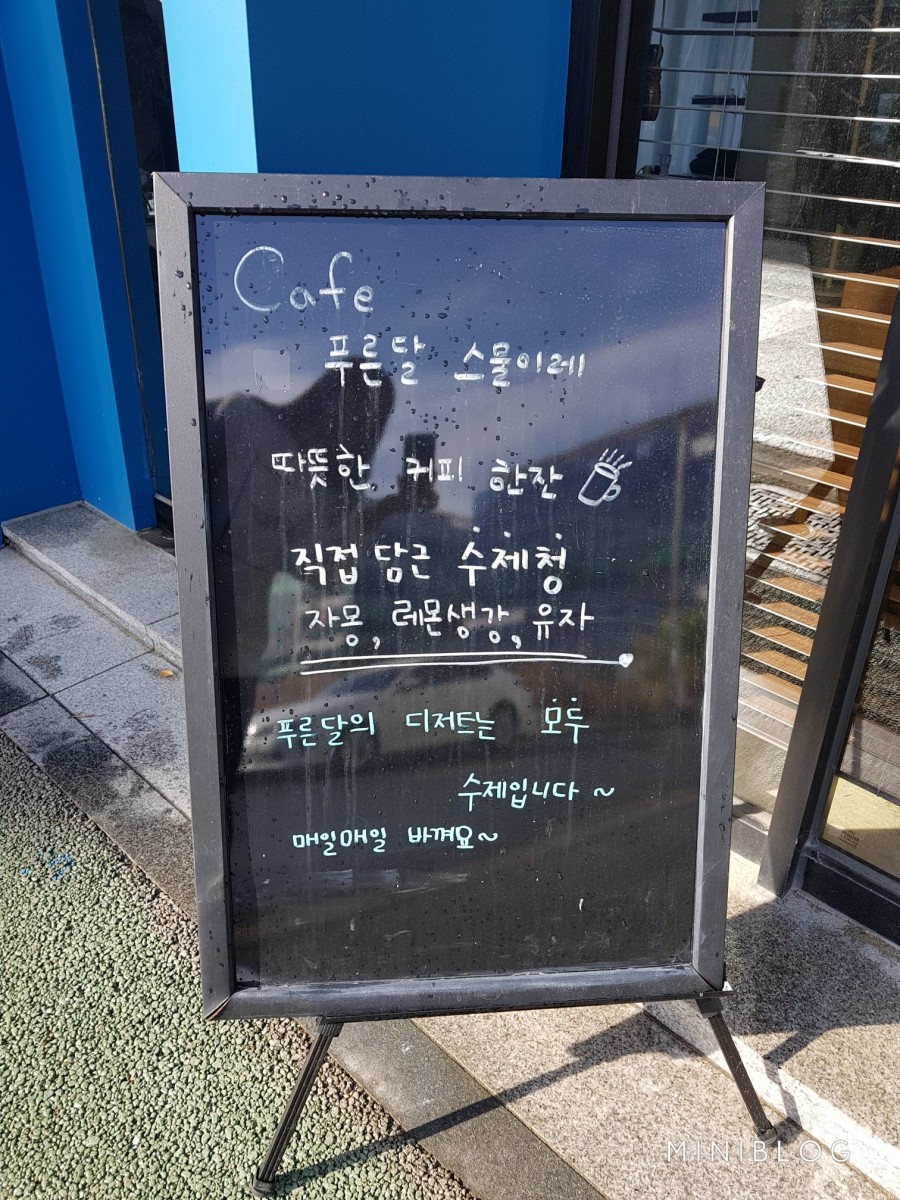 Cafe
푸른달 스물이레
따뜻한 커피 한잔
직접 담근 수제청
자몽, 레몬생강, 유자
푸른달의 디저트는 모두
수제입니다~
매일매일 바껴요~
MINIBLOG